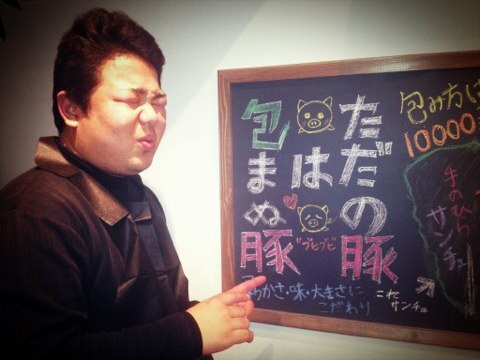 包み方は
10000
ただの豚
は
包まぬ豚
"ブヒブヒ"
手のひら
サンチュ
わらかさ・味・大きさに
こだわり
これ
サンチュ